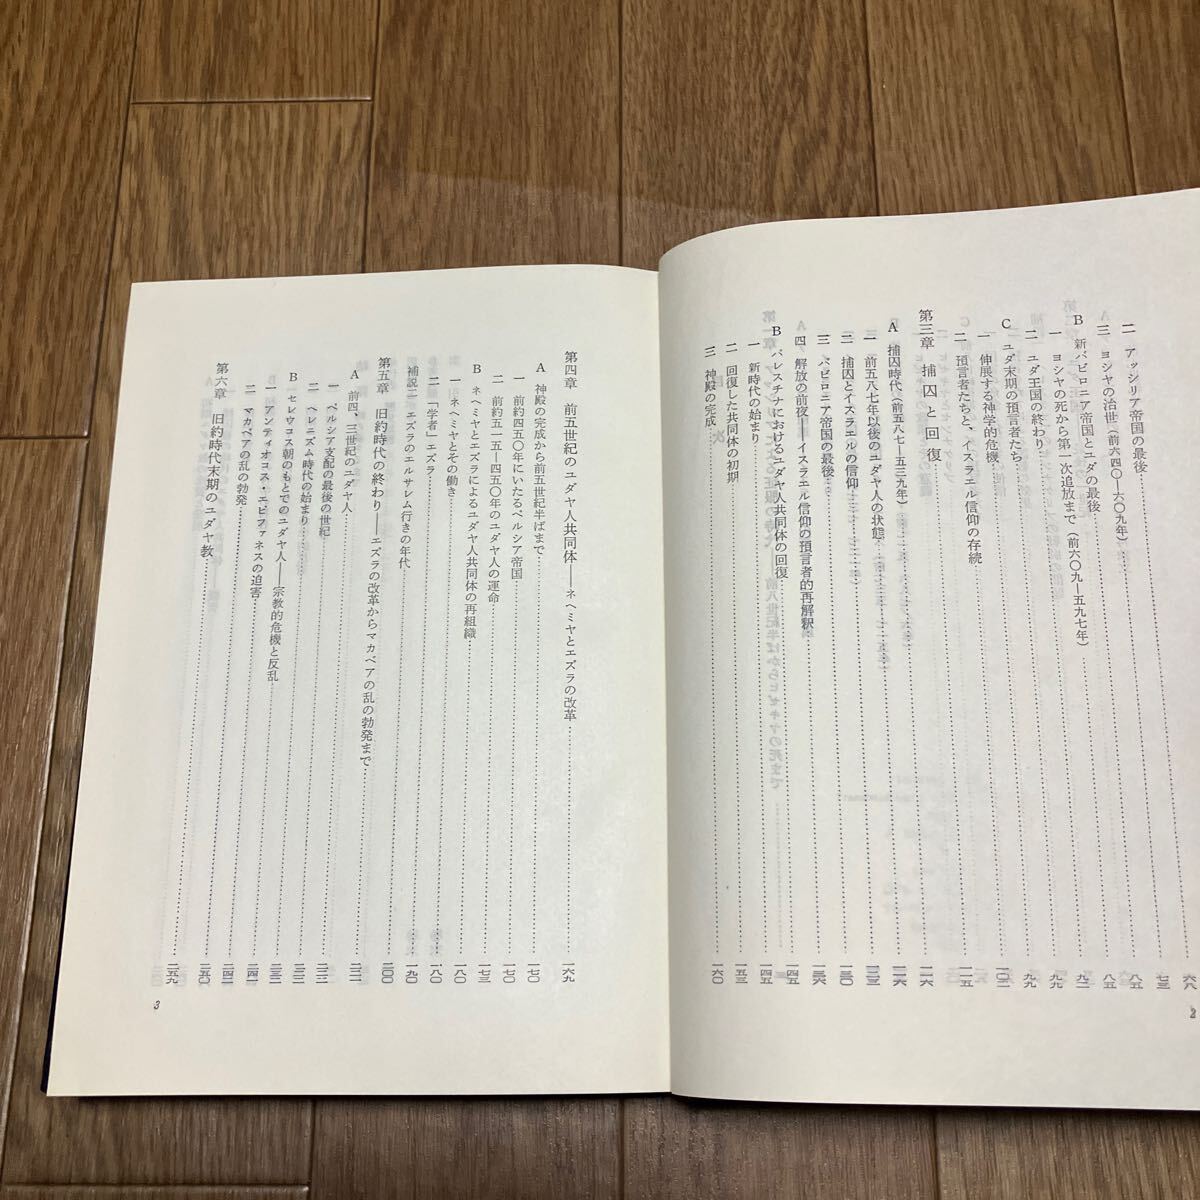 二 アッシリア帝国の最後……七三
三 ヨシヤの治世（前六四〇―六〇九年）……八五
B 新バビロニア帝国とユダの最後……八五
一 ヨシヤの死から第一次追放まで（前六〇九―五九七年）……九二
二 ユダ王国の終わり……九九
C ユダ末期の預言者たち……九九
一 伸展する神学的危機……一〇二
二 預言者たちと、イスラエル信仰の存続……一一五
第三章 捕囚と回復……一二六
A 捕囚時代（前五八七―五三九年）……一二六
一 前五八七年以後のユダヤ人の状態
二 捕囚とイスラエルの信仰……一三〇
三 バビロニア帝国の最後……一三六
四 解放の前夜――イスラエル信仰の預言者的再解釈……一四五
B パレスチナにおけるユダヤ人共同体の回復……一四五
一 新時代の始まり
二 回復した共同体の初期……一五三
三 神殿の完成……一六〇
2
第四章 前五世紀のユダヤ人共同体――ネヘミヤとエズラの改革……一六九
A 神殿の完成から前五世紀半ばまで……一七〇
一 前約四五〇年にいたるペルシア帝国……一七〇
二 前約五一五―四五〇年のユダヤ人の運命……一七三
B ネヘミヤとエズラによるユダヤ人共同体の再組織……一八〇
一 ネヘミヤとその働き……一八〇
二 「学者」エズラ……一九〇
補説二 エズラのエルサレム行きの年代……二〇〇
第五章 旧約時代の終わり――エズラの改革からマカベアの乱の勃発まで
A 前四、三世紀のユダヤ人
一 ペルシア支配の最後の世紀
二 ヘレニズム時代の始まり
B セレウコス朝のもとでのユダヤ人――宗教的危機と反乱
一 アンティオコス・エピファネスの迫害
二 マカベアの乱の勃発……二五〇
第六章 旧約時代末期のユダヤ教……二五九
3